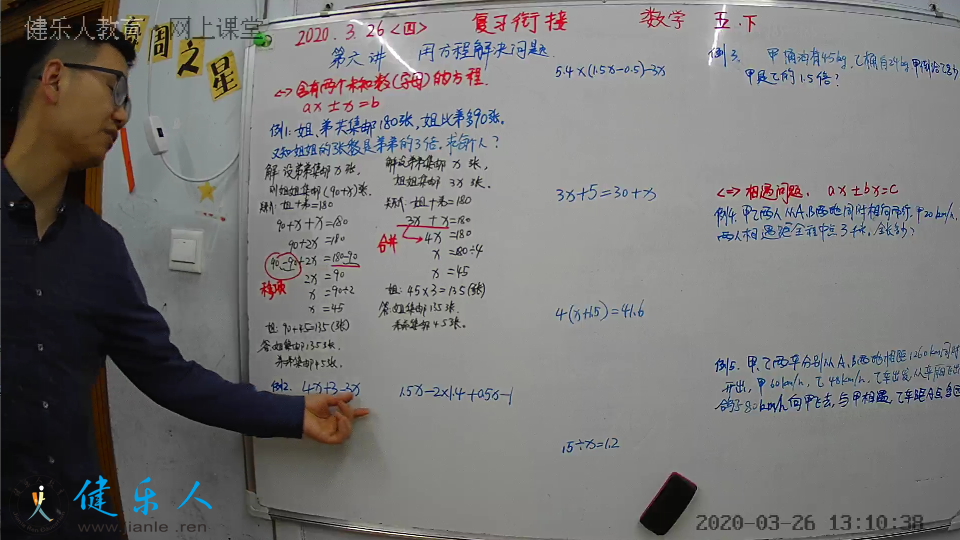 健乐人教育·网上课堂
周
之
星
2020.3.26<四>  复习衔接  数学 五.下
第六讲 用方程解决问题
<一>含有两个未知数(字母)的方程.
ax±x=b
例1:姐、弟共集邮180张,姐比弟多90张.
又知姐姐的张数是弟弟的3倍.求每个人?
解:设弟弟集邮x张,
则姐姐集邮(90+x)张.
姐+弟=180
90+x+x=180
90+2x=180
90-90+2x=180-90
移项
2x=90
x=90÷2
x=45
姐:90+45=135(张)
答:姐集邮135张,
弟弟集邮45张.
解:设弟弟集邮x张,
姐姐集邮3x张.
姐+弟=180
3x+x=180
合并
4x=180
x=180÷4
x=45
姐:45×3=135(张)
答:姐集邮135张
弟弟集邮45张.
例2. 4x+3-3x
1.5x-2×1.4+0.5x-1
5.4×(1.5x-0.5)-3x
3x+5=30+x
4(x+1.5)=41.6
1.5÷x=1.2
例3. 甲桶油有45kg,乙桶有24kg
甲是乙的1.5倍?
<二>相遇问题. ax±bx=c
例4.甲乙两人从A、B两地同时相向而行,甲20km/h,
例5.甲、乙两车分别从A、B两地相距1260km
开出,甲60km/h,乙48km/h,
80km/h向甲飞去,与甲相遇,
健乐人
www.jianle.ren
2020-03-26 13:10:38